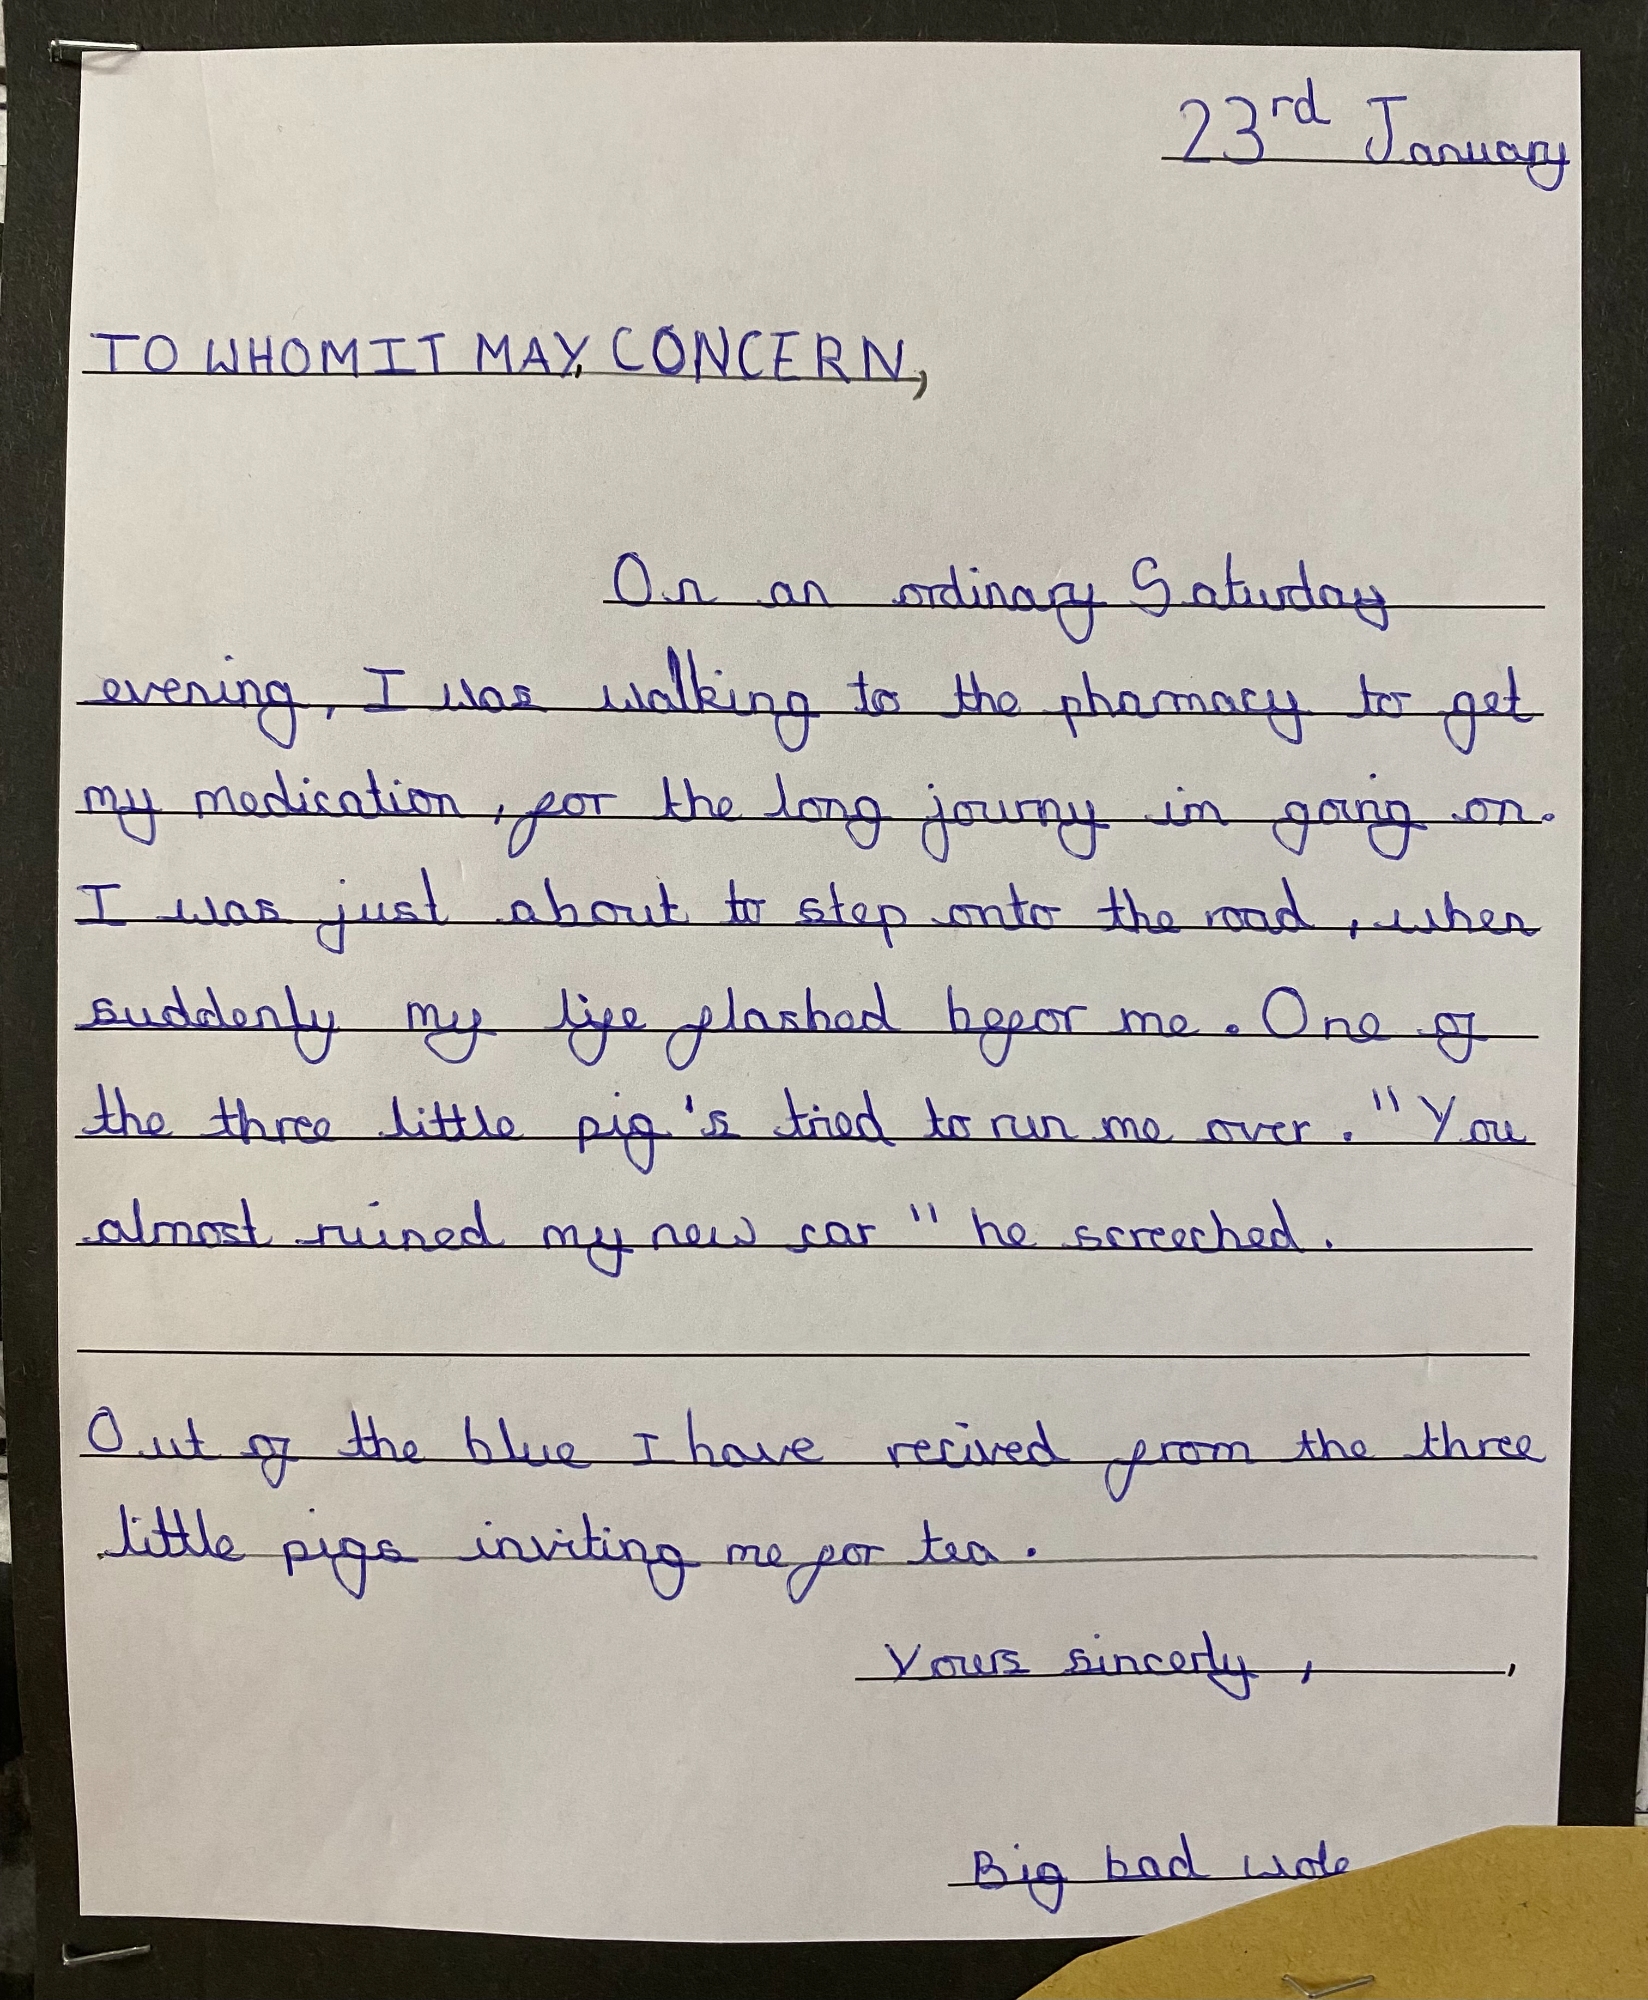 23rd January
TO WHOM IT MAY CONCERN,
On an ordinary Saturday
evening, I was walking to the pharmacy to get
my medication, for the long journy im going on.
I was just about to step onto the road, when
suddenly my life flashed befor me. One of
the three little pig's tried to run me over. "You
almost ruined my new car" he screeched.
Out of the blue I have recived from the three
little pigs inviting me for tea.
Yours sincerly,
Big bad